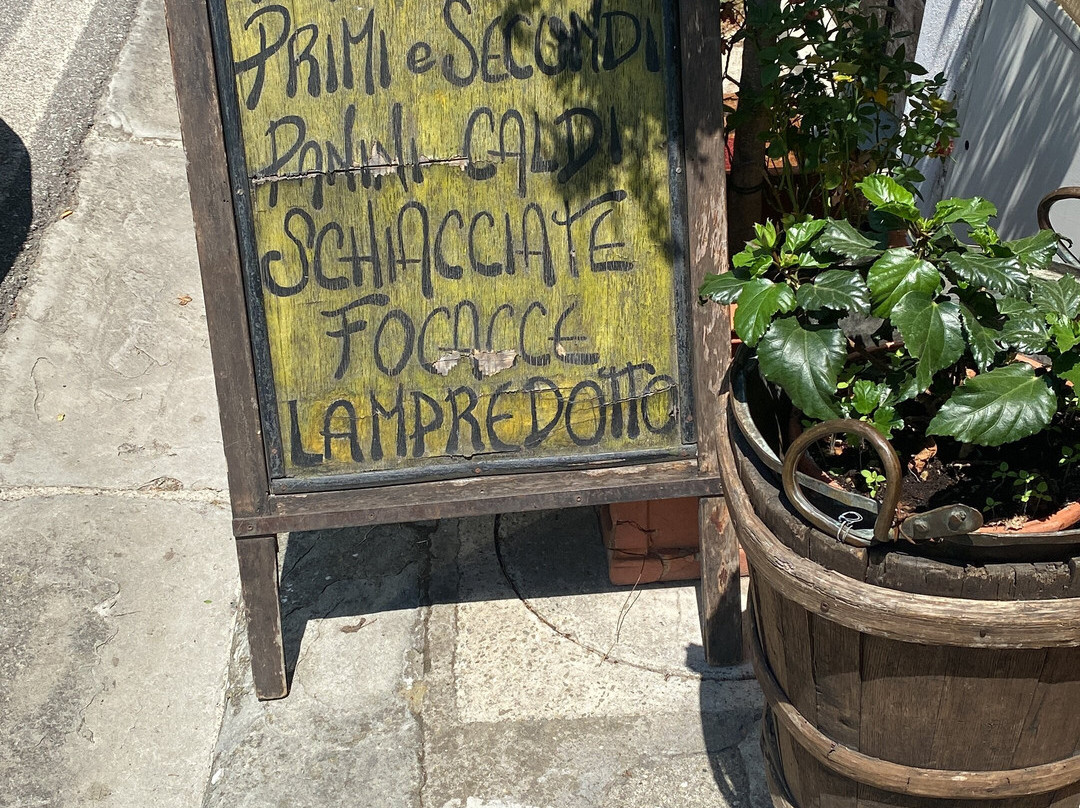 PRIMI e SECONDI
PANINI CALDI
SCHIACCIATE
FOCACCE
LAMPREDOTTO